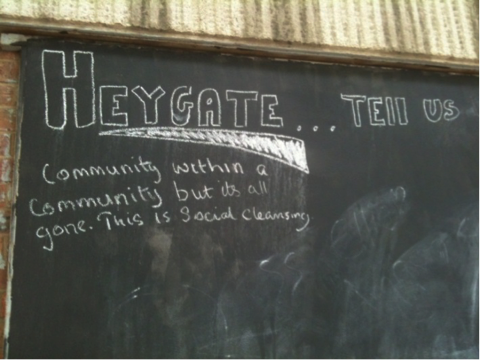 HEYGATE... TELL US
Community within a
Community but its all
gone. This is Social cleansing.